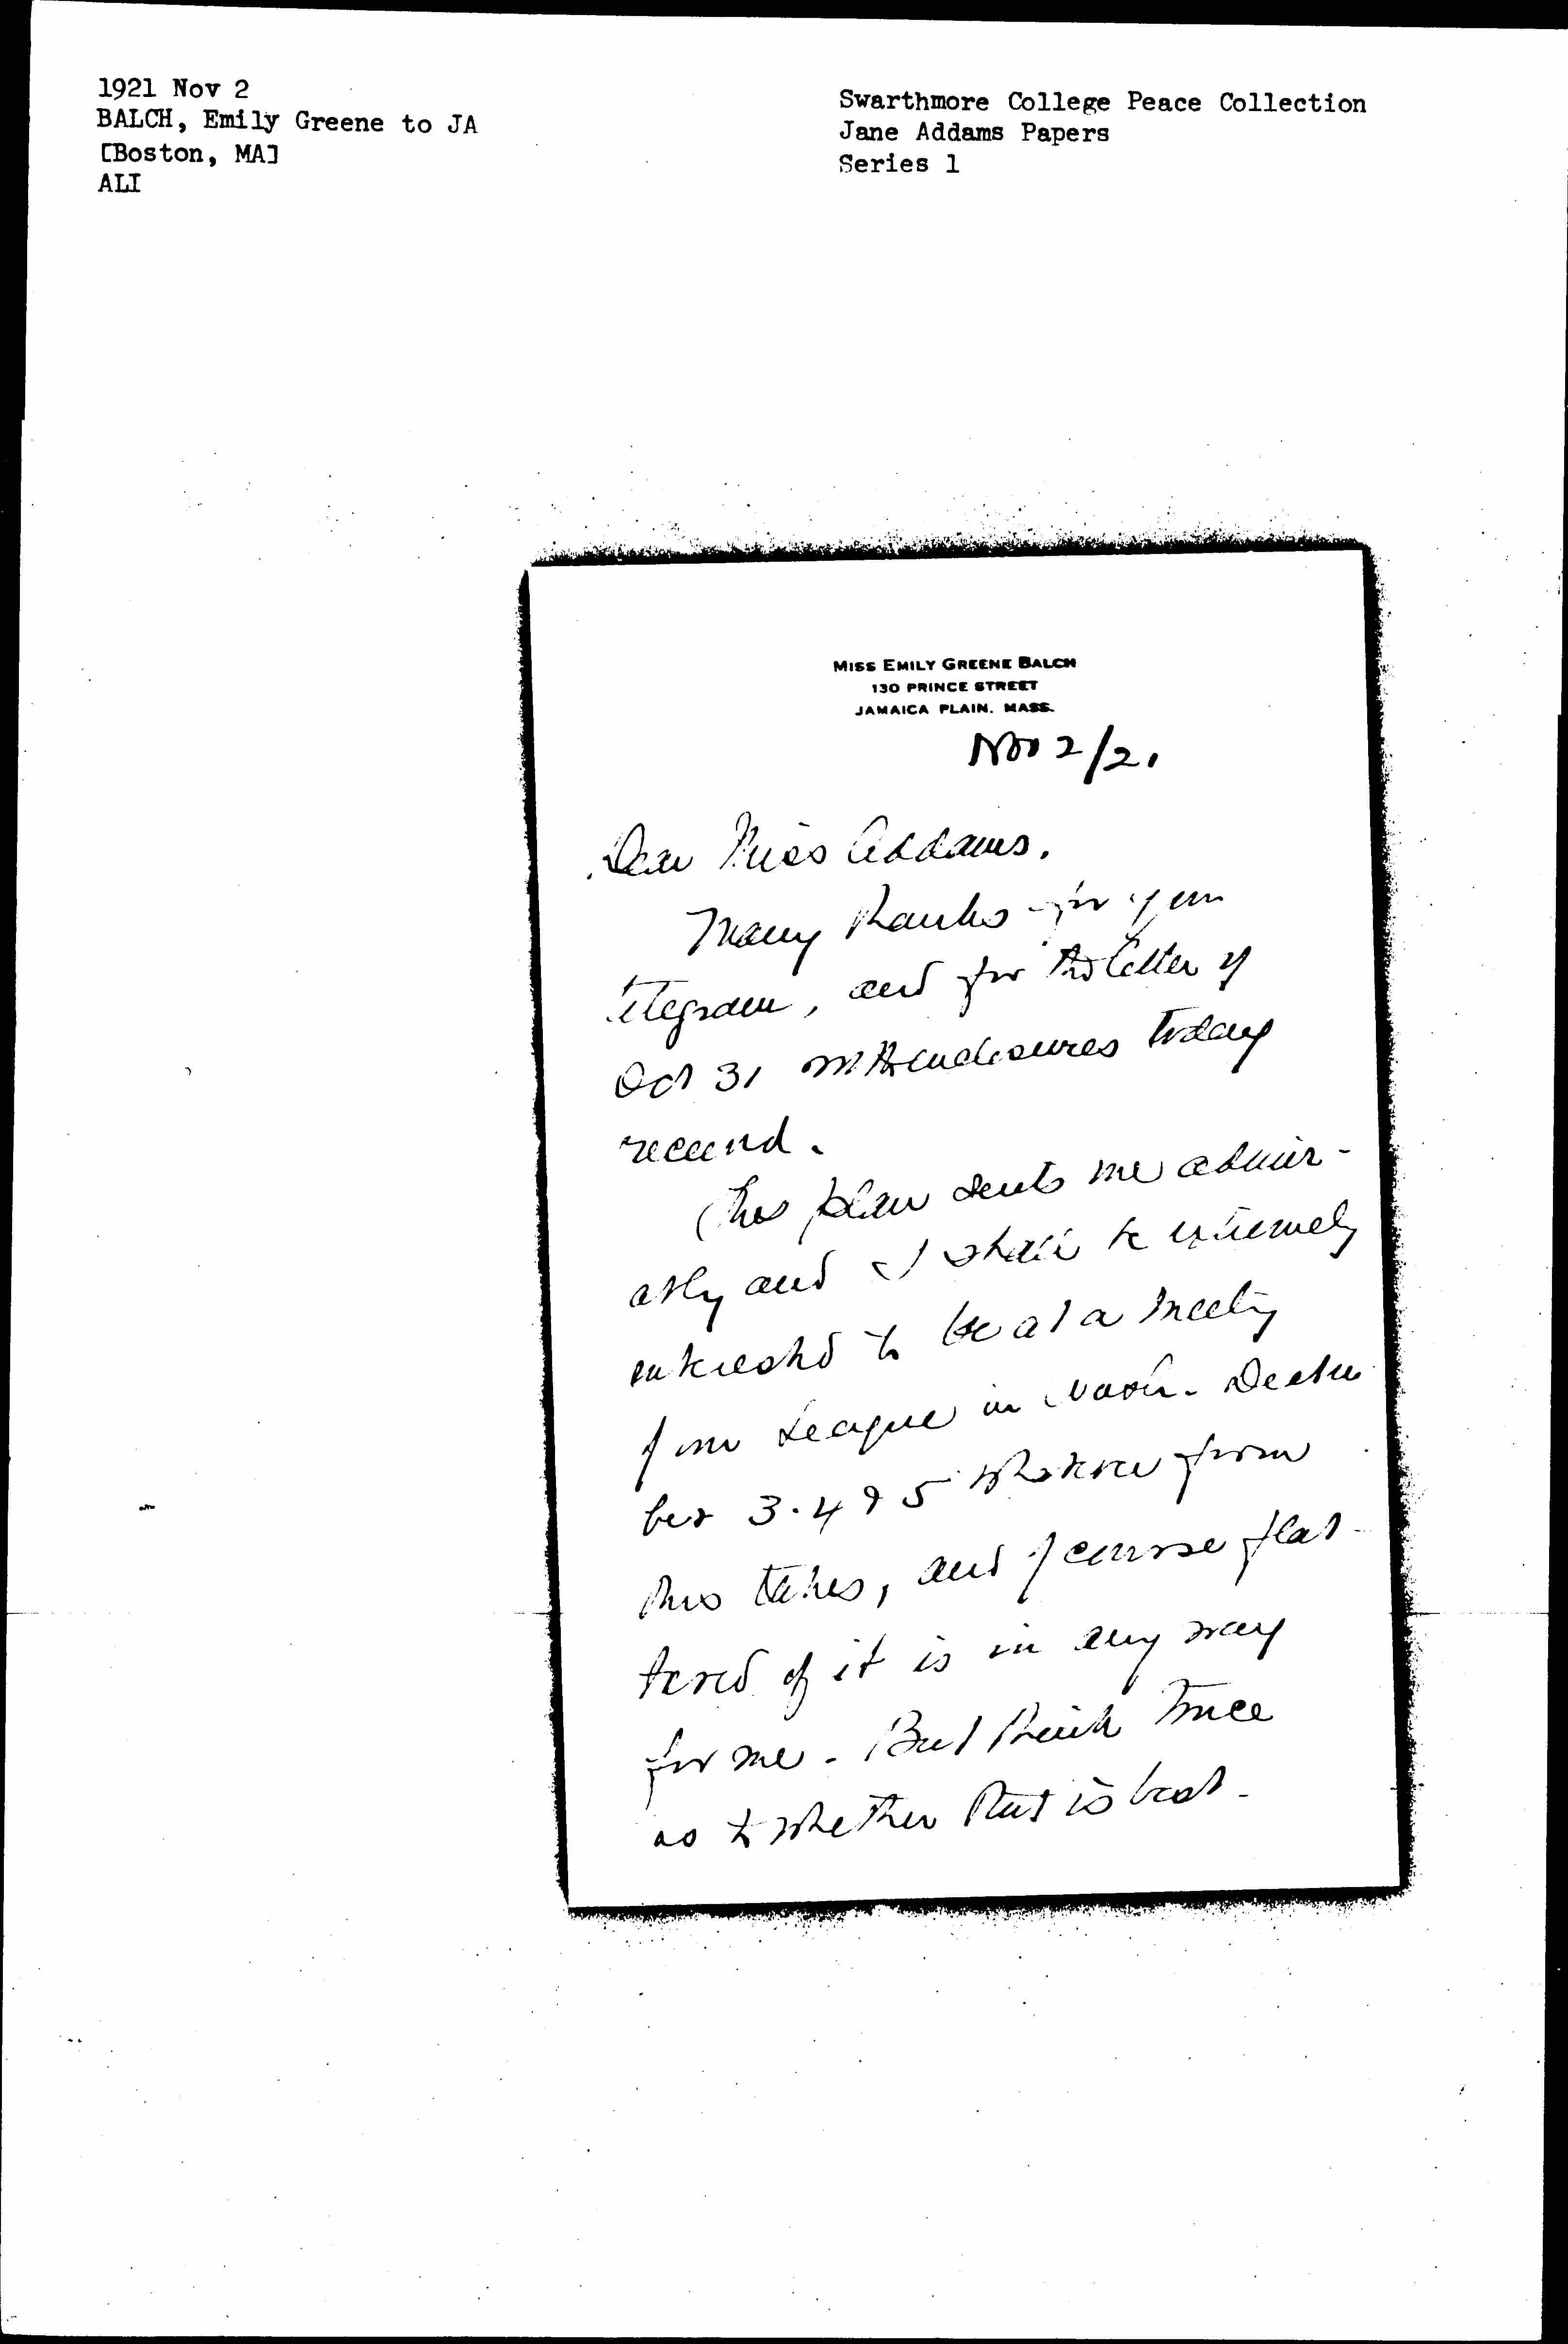 1921 Nov 2
BALCH, Emily Greene to JA
[Boston, MA]
ALI
Swarthmore College Peace Collection
Jane Addams Papers
Series 1
MISS EMILY GREENE BALCH
130 PRINCE STREET
JAMAICA PLAIN. MASS.
Nov 2/21
Dear Miss Addams.
Many thanks for your
telegram, and for the letter of
Oct 31 with enclosures today
received.
This plan suits me admir-
ably and I shall be extremely
interested to be at a meeting
of our League in Wash. Decem
ber 3.4 & 5 whatever form
this takes, and of course flat-
tered if it is in any way
for me. But think twice
as to whether that is best.